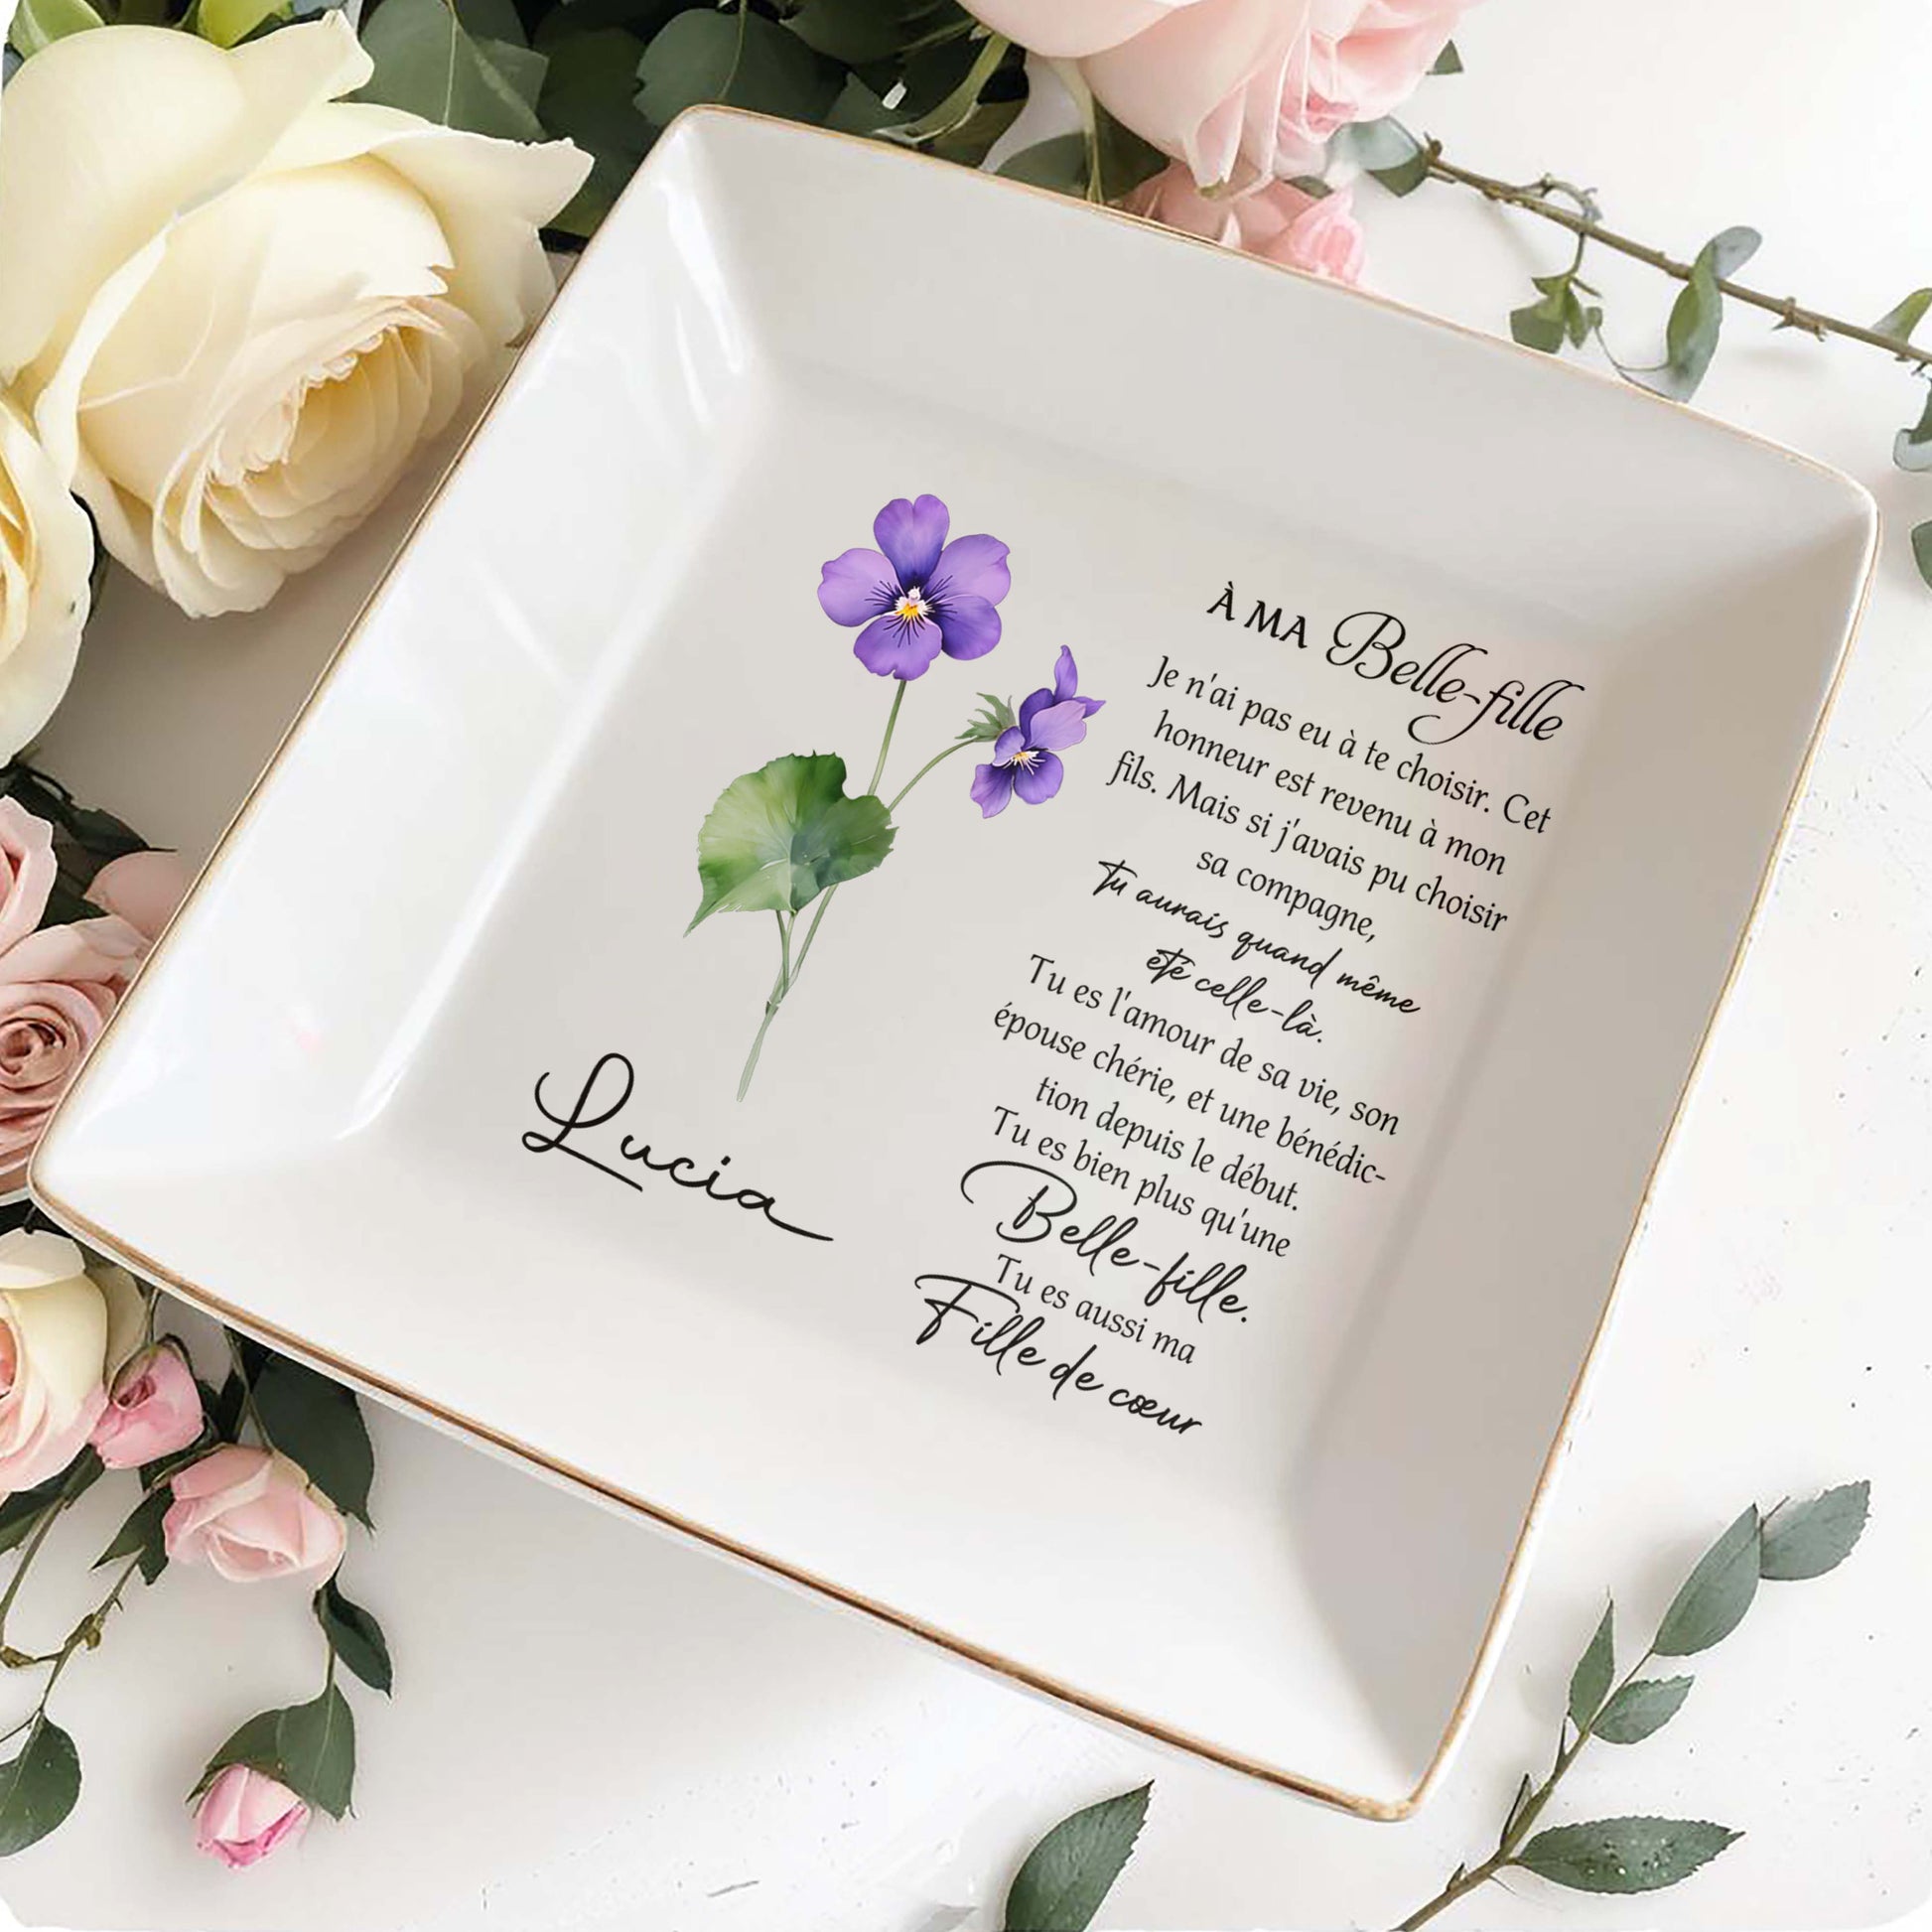 À MA Belle-fille
Je n'ai pas eu à te choisir. Cet
honneur est revenu à mon
fils. Mais si j'avais pu choisir
sa compagne,
Tu aurais quand même
été celle-là.
Tu es l'amour de sa vie, son
épouse chérie, et une bénédic-
tion depuis le début.
Tu es bien plus qu'une
Belle-fille.
Tu es aussi ma
Fille de cœur
Lucia